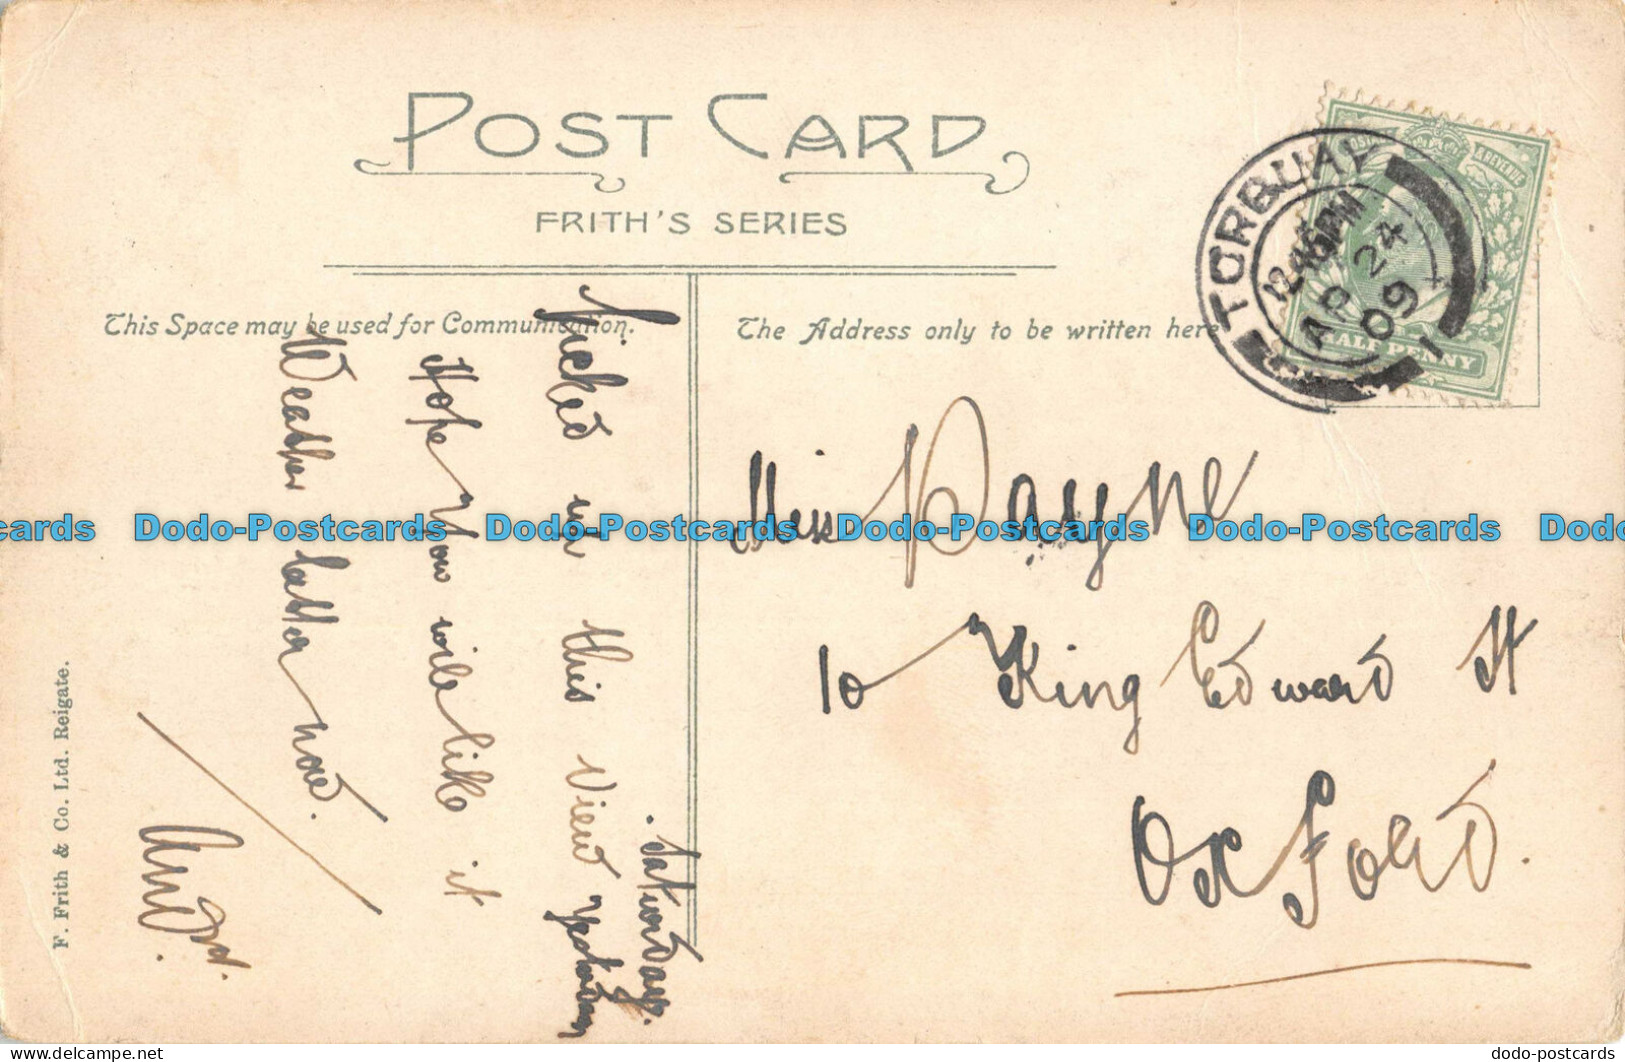 POST CARD
FRITH'S SERIES
This Space may be used for Communication.
The Address only to be written here
TORQUAY
12.45PM
AP 24
09
HALFPENNY
Saturday.
Picked up this View Yesterday
Hope You will like it
Weather better now.
Miss Payne
10 King Edward St
Oxford.
F. Frith & Co. Ltd. Reigate.
Dodo-Postcards Dodo-Postcards Dodo-Postcards Dodo-Postcards
dodo-postcards
www.delcampe.net
dodo-postcards